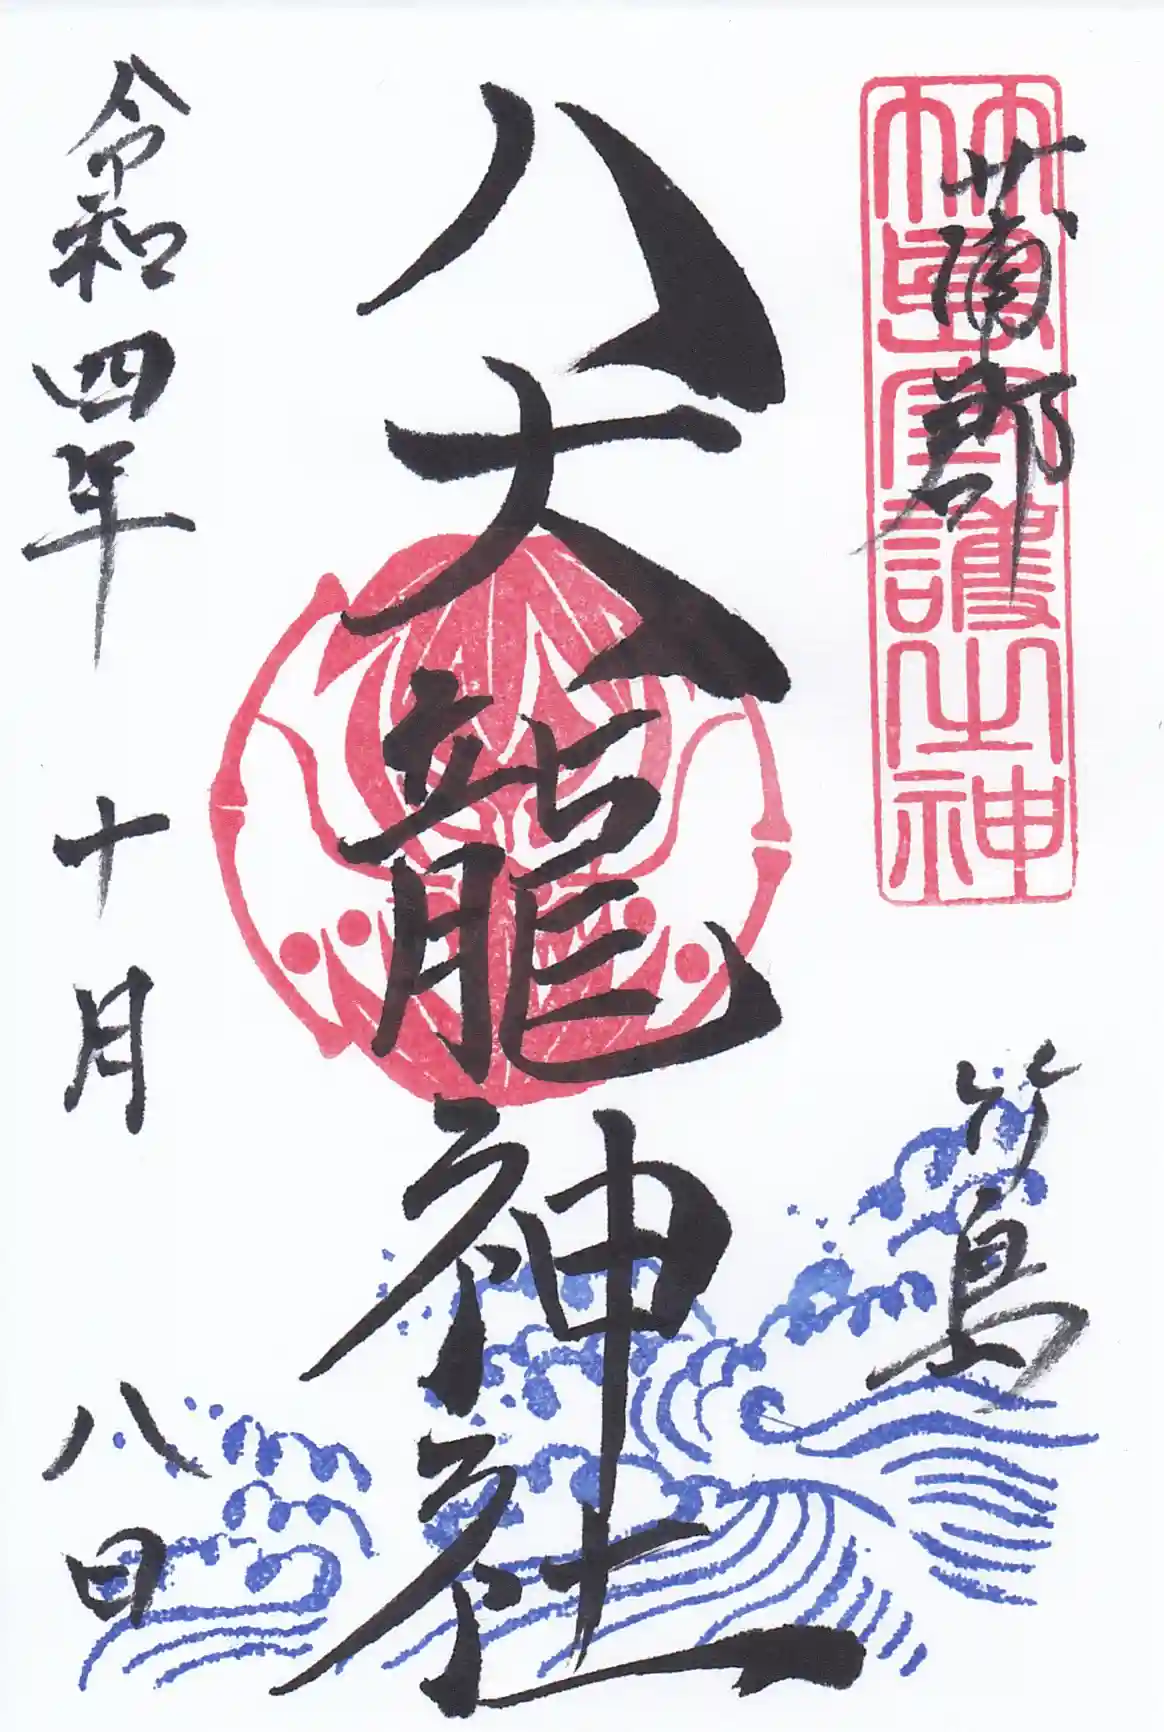 蒲郡 竹島
竹島守護之神
八大龍神社
令和四年十月八日